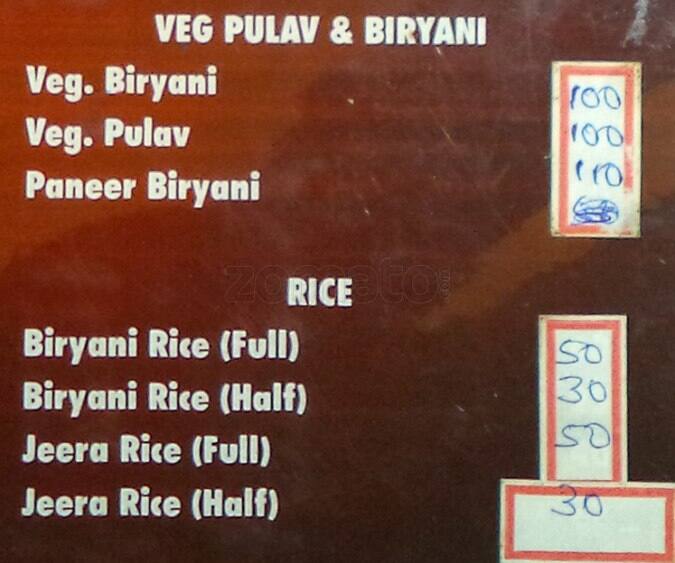 VEG PULAV & BIRYANI
Veg. Biryani 100
Veg. Pulav 100
Paneer Biryani 110
zomato
RICE
Biryani Rice (Full) 50
Biryani Rice (Half) 30
Jeera Rice (Full) 50
Jeera Rice (Half) 30